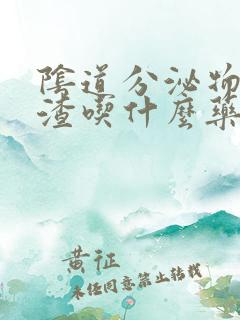 陰道分泌物
渣喫什麼藥
黄征
未经同意禁止转载